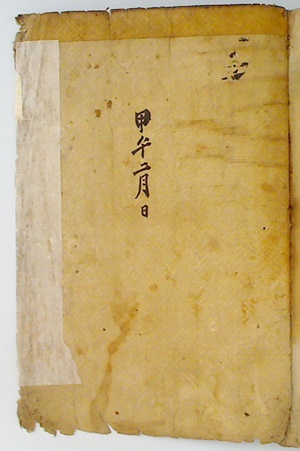 甲午二月日